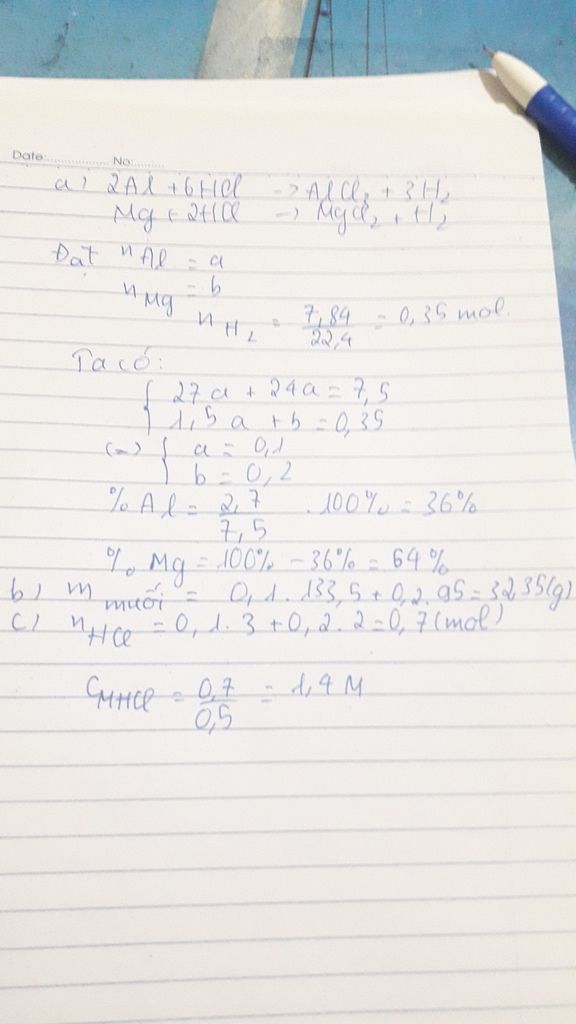 Date:.................... No:..........
a) 2Al + 6HCl -> AlCl₃ + 3H₂
Mg + 2HCl -> MgCl₂ + H₂
Đặt nAl = a
nMg = b
nH₂ = 7,84/22,4 = 0,35 mol.
Ta có:
{ 27a + 24a = 7,5
1,5a + b = 0,35
(=) { a = 0,1
b = 0,2
% Al = 2,7/7,5 . 100% = 36%
% Mg = 100% - 36% = 64%
b) m muối = 0,1. 133,5 + 0,2. 95 = 32,35(g)
c) nHCl = 0,1. 3 + 0,2. 2 = 0,7 (mol)
CMHCl = 0,7/0,5 = 1,4 M